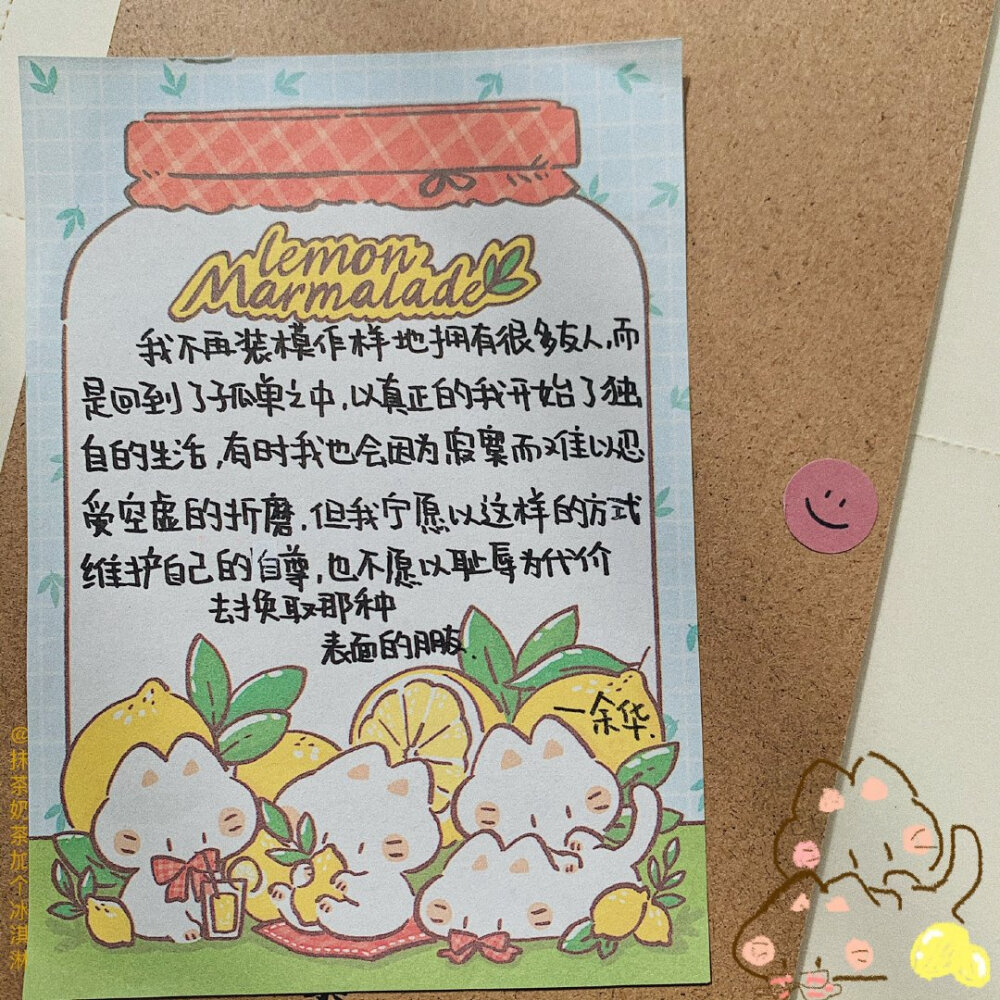 lemon
Marmalade
我不再装模作样地拥有很多友人,而
是回到了孤单之中,以真正的我开始了独
自的生活,有时我也会因为寂寞而难以忍
受空虚的折磨,但我宁愿以这样的方式
维护自己的自尊,也不愿以耻辱为代价
去换取那种
表面的朋友.
—余华.
@抹茶奶茶加个冰淇淋